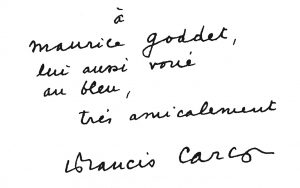 à
maurice goddet,
lui aussi voué
au bleu,
très amicalement
Francis Carco